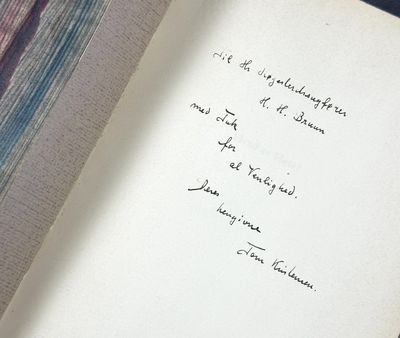 Til Hr
H. H. Bruun
med Tak
for
al Venlighed.
Deres
hengivne
Tom Kristensen.